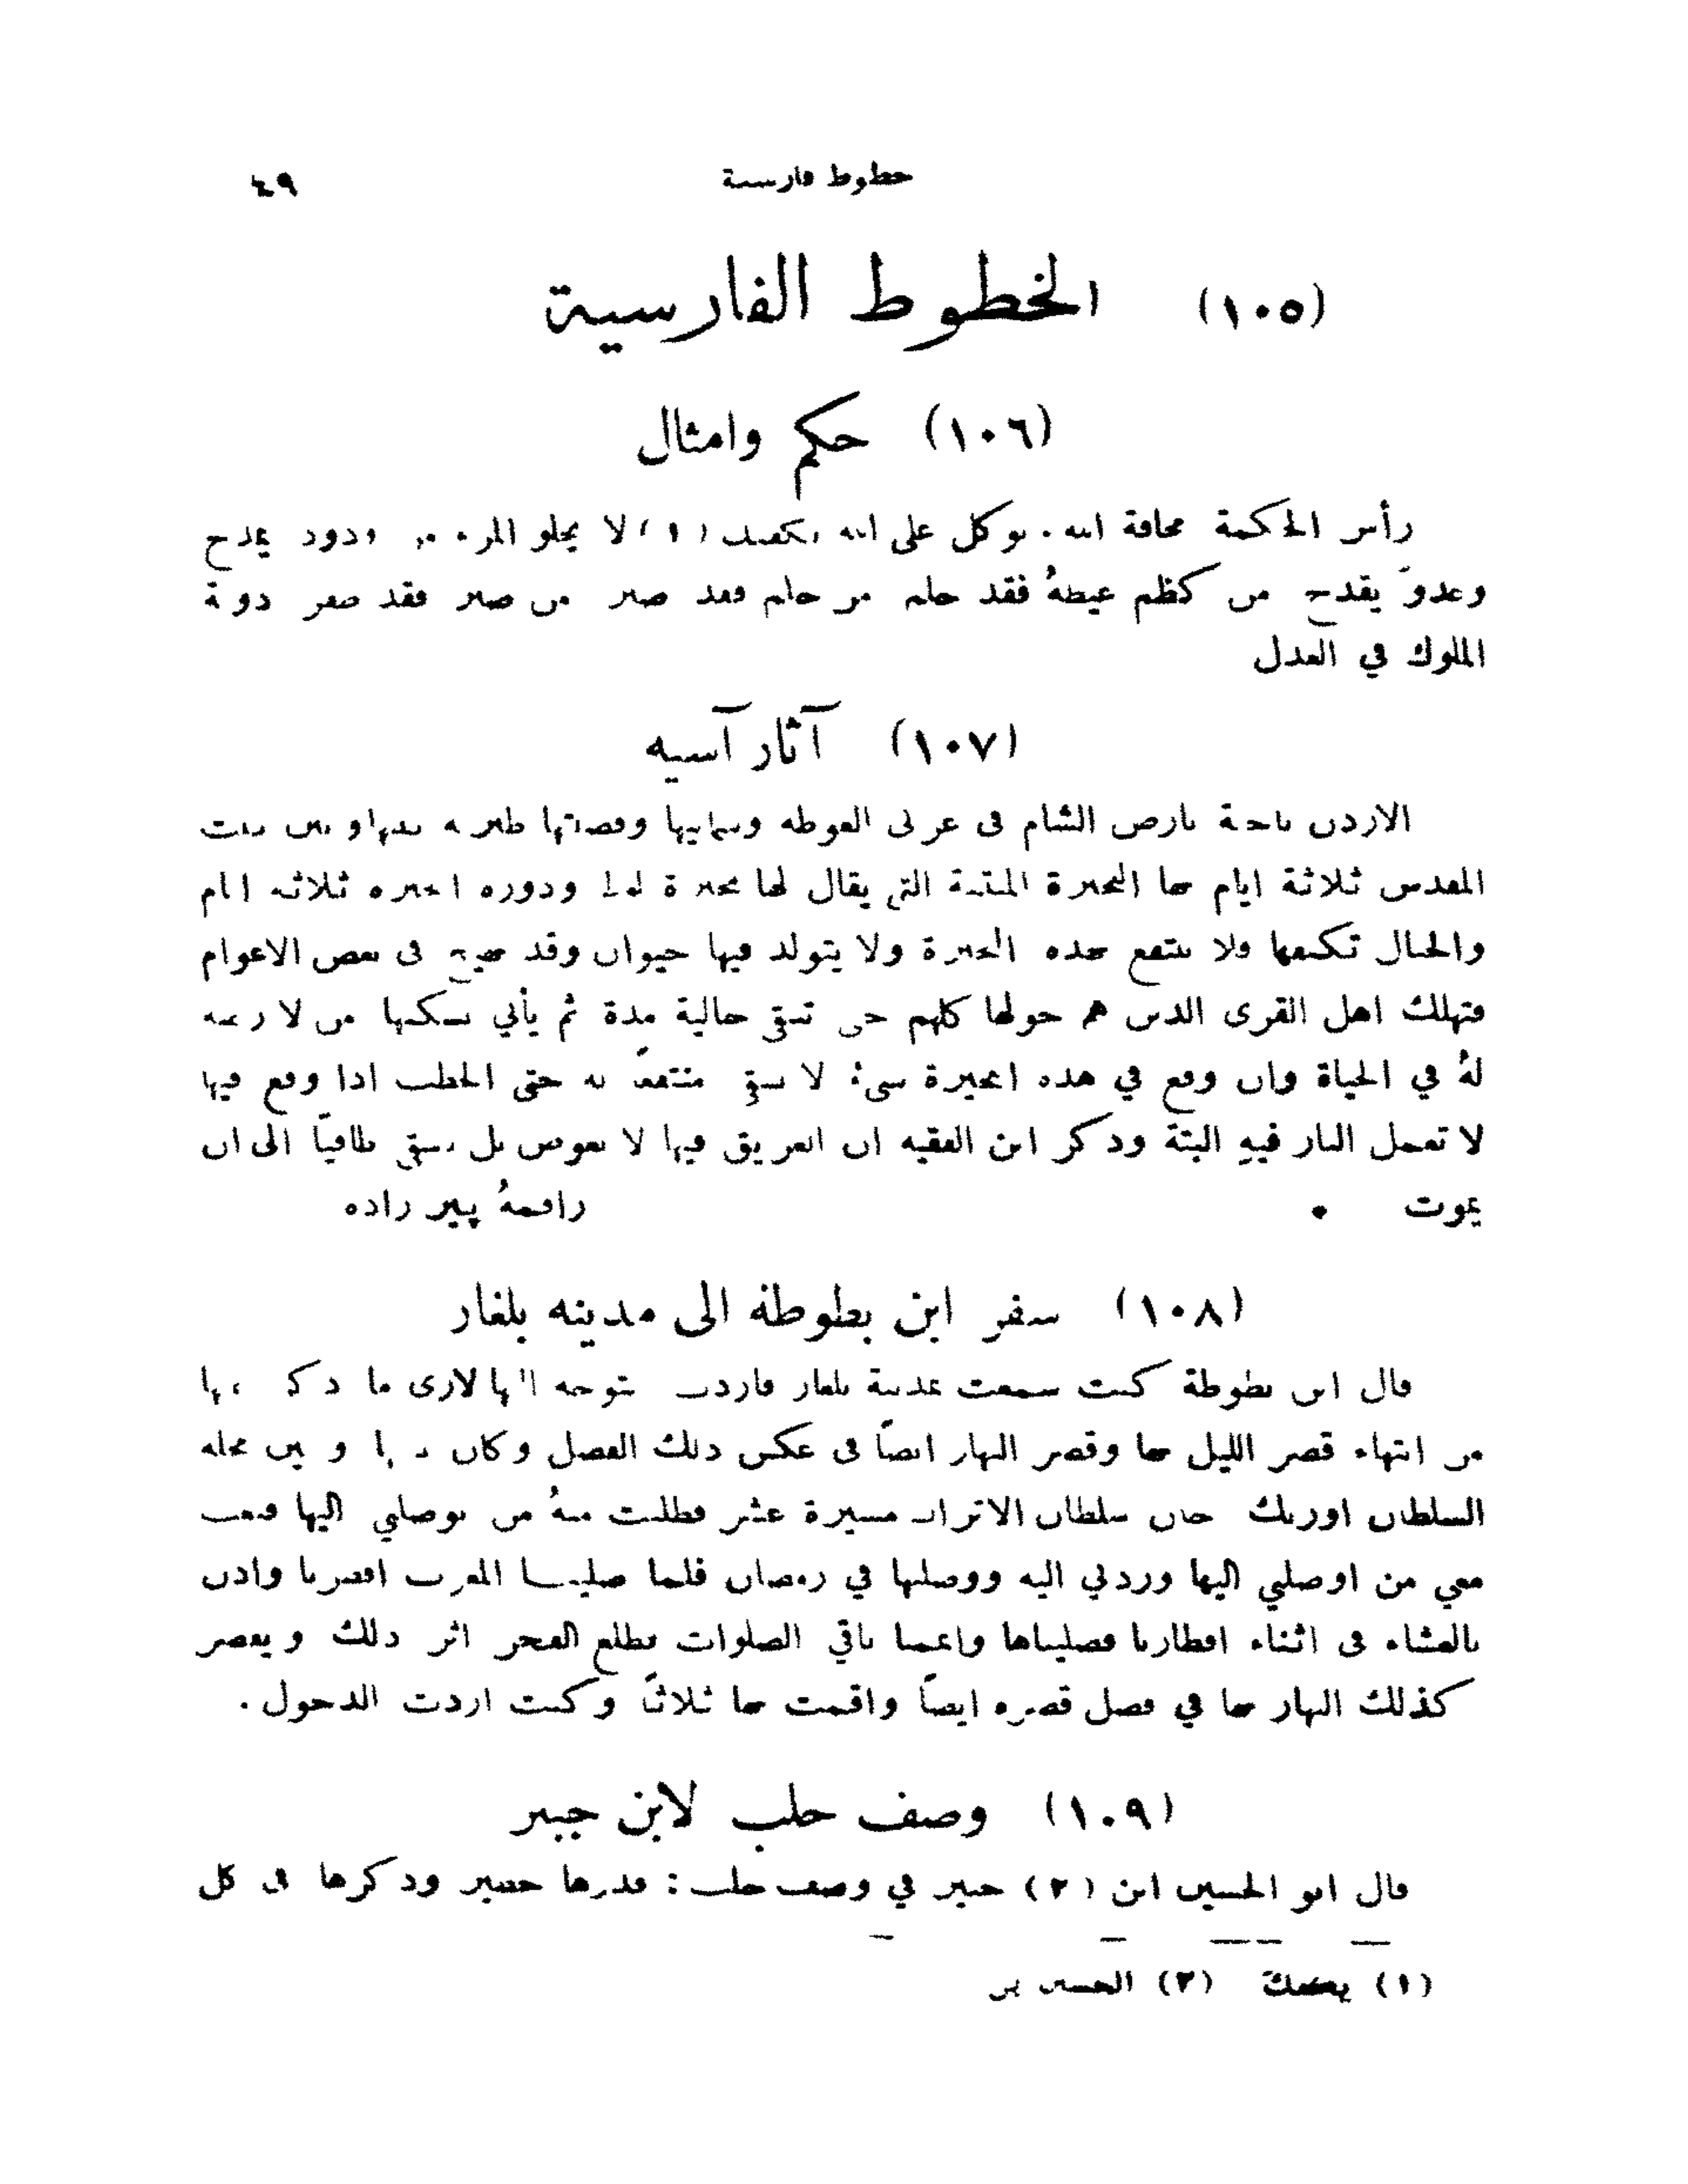 خطوط فارسية ٤٩
(١٠٥) الخطوط الفارسية
(١٠٦) حكم وامثال
رأس الحكمة مخافة الله . توكل على الله يكفيك (١) لا يخلو المرء من ودود يمدح
وعدوّ يقدح من كظم غيظهُ فقد حلم من حلم فقد صبر من صبر فقد ظفر دولة
الملوك في العدل
(١٠٧) آثار آسيه
الاردن ناحية بارض الشام في غربي الغوطه وشماليها وقصبتها طبريه بينها وبين بيت
المقدس ثلاثة ايام بها البحيرة المنتنة التي يقال لها بحيرة لوط ودوره البحيره ثلاثه ايام
والجبال تكنفها ولا ينتفع بهذه البحيرة ولا يتولد فيها حيوان وقد تهيج في بعض الاعوام
فتهلك اهل القرى الذين هم حولها كلهم حتى تبقى خالية مدة ثم يأتي يسكنها من لا رغبه
لهُ في الحياة وان وقع في هذه البحيرة شيء لا يبقى منتفعاً به حتى الحطب اذا وقع فيها
لا تعمل النار فيهِ البتة وذكر ابن الفقيه ان الغريق فيها لا يغوص بل يبقى طافياً الى ان
يموت • راقمهُ پير زاده
(١٠٨) سفر ابن بطوطة الى مدينه بلغار
قال ابن بطوطة كنت سمعت بمدينة بلغار فاردت التوجه اليها لارى ما ذكر عنها
من انتهاء قصر الليل بها وقصر النهار ايضاً في عكس ذلك الفصل وكان بينها وبين محله
السلطان اوزبك خان سلطان الاتراك مسيرة عشر فطلبت منهُ من يوصلني اليها فبعث
معي من اوصلني اليها وردني اليه ووصلتها في رمضان فلما صلينا المغرب افطرنا واذن
بالعشاء في اثناء افطارنا فصليناها واتممنا باقي الصلوات فطلع الفجر اثر ذلك ويقصر
كذلك النهار بها في فصل قصره ايضاً واقمت بها ثلاثاً وكنت اردت الدخول .
(١٠٩) وصف حلب لابن جبير
قال ابو الحسين ابن (٢) جبير في وصف حلب : قدرها خطير وذكرها في كل
(١) يكفيك (٢) الحسين بن